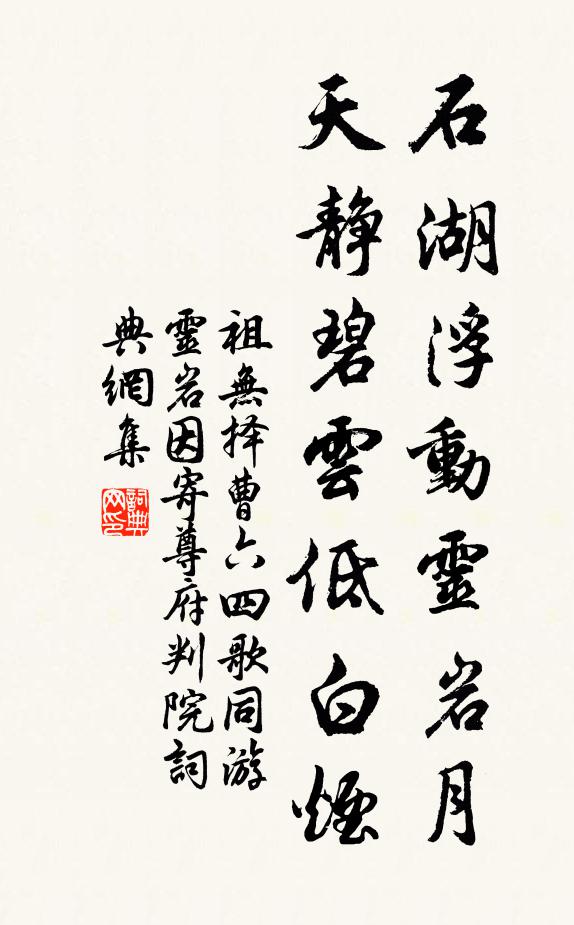 石湖浮動靈岩月
天静碧雲低白煙
祖無择曹六四歌同游
靈岩因寄尊府判院詞
典網集
詞典
网印